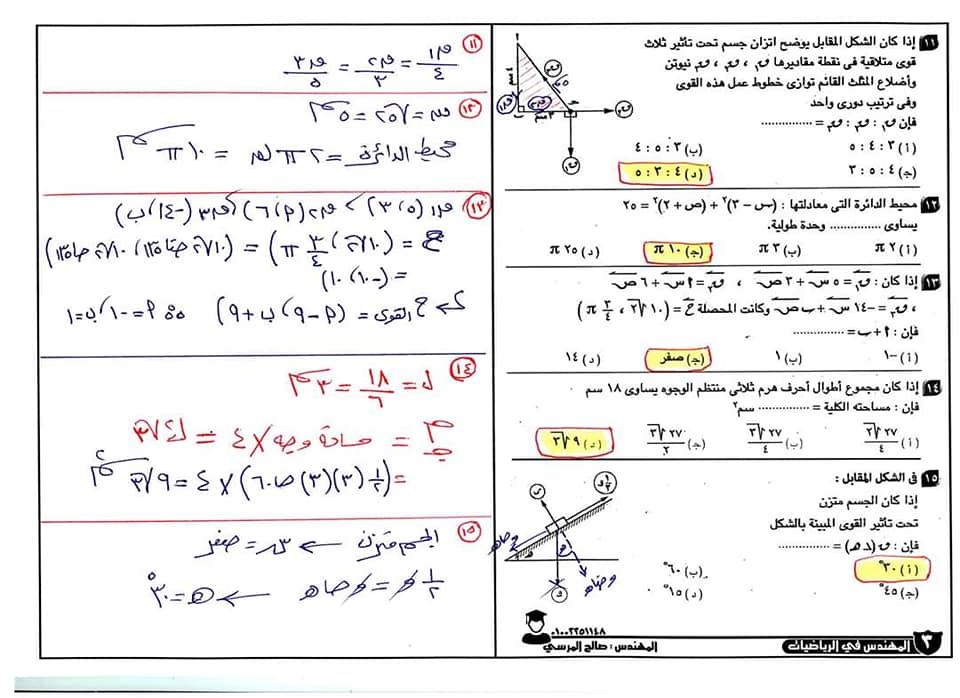 ١١ إذا كان الشكل المقابل يوضح اتزان جسم تحت تأثير ثلاث
قوى متلاقية فى نقطة مقاديرها ق١ ، ق٢ ، ق٣ نيوتن
وأضلاع المثلث القائم توازى خطوط عمل هذه القوى
وفى ترتيب دورى واحد
فإن ق١ : ق٢ : ق٣ = ...............
(أ) ٣ : ٤ : ٥
(ب) ٣ : ٥ : ٤
(ج) ٤ : ٥ : ٣
(د) ٤ : ٣ : ٥
١٢ محيط الدائرة التى معادلتها : (س - ٣)٢ + (ص + ٢)٢ = ٢٥
يساوى ............... وحدة طولية.
(أ) ٢ π
(ب) ٣ π
(ج) ١٠ π
(د) ٢٥ π
١٣ إذا كان : ق١ = ٥ س + ٣ ص ، ق٢ = ٢ س + ٦ ص
، ق٣ = -١٤ س + ب ص وكانت المحصلة ح = (١٠ √٢ ، ٣/٤ π)
فإن : ٢ + ب = ...............
(أ) -١
(ب) ١
(ج) صفر
(د) ١٤
١٤ إذا كان مجموع أطوال أحرف هرم ثلاثى منتظم الوجوه يساوى ١٨ سم
فإن : مساحته الكلية = ............... سم٢
(أ) ٢٧ √٢ / ٤
(ب) ٢٧ √٣ / ٤
(ج) ٢٧ √٣ / ٢
(د) ٩ √٣
١٥ فى الشكل المقابل :
إذا كان الجسم متزن
تحت تأثير القوى المبينة بالشكل
فإن : ق (د هـ) = ...............
(أ) ٣٠°
(ب) ٦٠°
(ج) ٤٥°
(د) ١٥°
٣ المهندس في الرياضيات
المهندس : صالح المرسي
٠١٠٠٢٢٥١١٤٨
١١ ق١/٤ = ق٢/٣ = ق٣/٥
١٢ نق = √٢٥ = ٥ سم
محيط الدائرة = ٢ π نق = ١٠ π سم
١٣ ق١ (٥، ٣) ، ق٢ (٢، ٦) ، ق٣ (-١٤، ب)
ح = (١٠√٢ ، ٣/٤ π) = (١٠√٢ جتا ١٣٥ ، ١٠√٢ جا ١٣٥)
= (-١٠، ١٠)
ح القوى = (٢ - ٩ ، ب + ٩) ∴ ٢ = -١ ، ب = ١
١٤ ل = ١٨/٦ = ٣ سم
= مساحة وجه × ٤ = ل٢ √٣
= (١/٢ (٣)(٣) جا ٦٠) × ٤ = ٩√٣ سم٢
١٥ الجسم متزن ← س = صفر
١/٢ و = و جا هـ ← هـ = ٣٠°